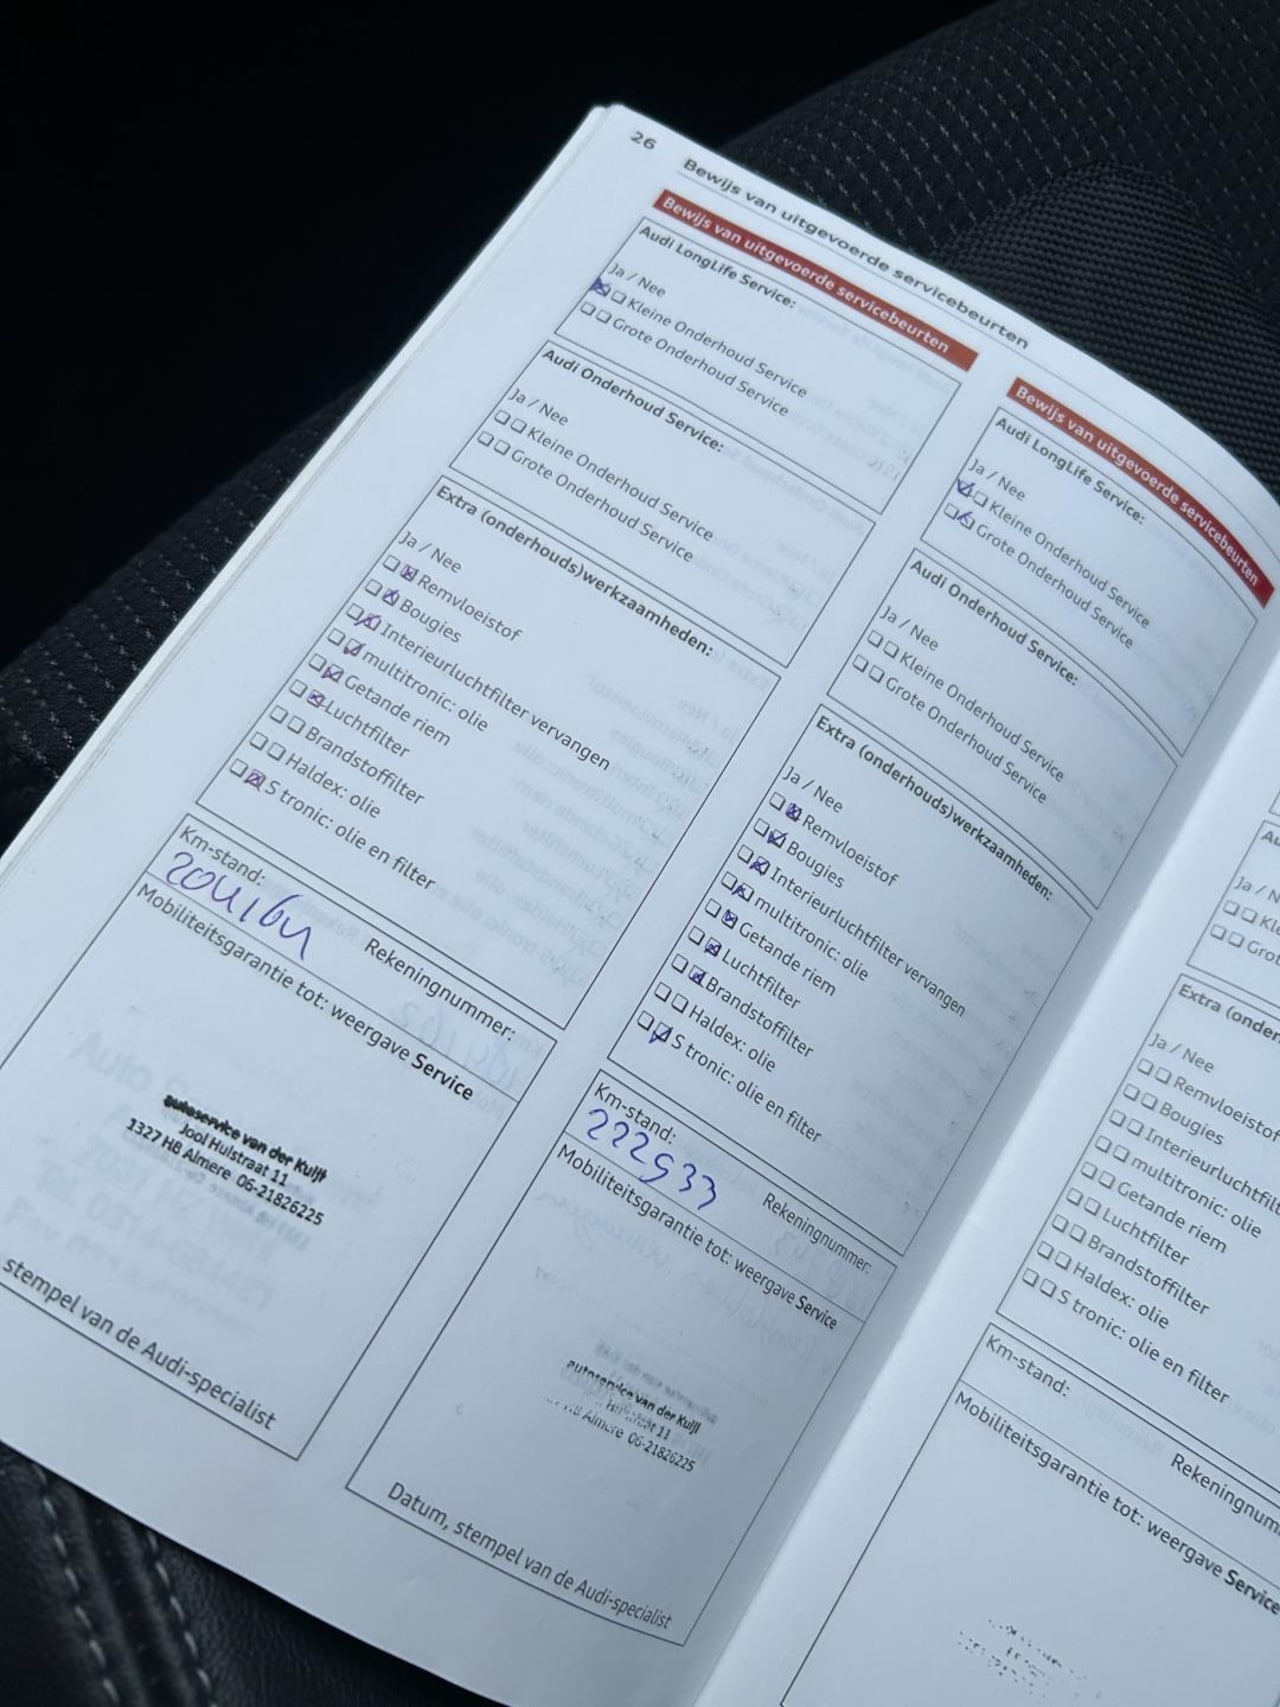 26
Bewijs van uitgevoerde servicebeurten
Bewijs van uitgevoerde servicebeurten
Audi LongLife Service:
Ja / Nee
Kleine Onderhoud Service
Grote Onderhoud Service
Audi Onderhoud Service:
Ja / Nee
Kleine Onderhoud Service
Grote Onderhoud Service
Extra (onderhouds)werkzaamheden:
Ja / Nee
Remvloeistof
Bougies
Interieurluchtfilter vervangen
multitronic: olie
Getande riem
Luchtfilter
Brandstoffilter
Haldex: olie
S tronic: olie en filter
Km-stand:
204164
Rekeningnummer:
Mobiliteitsgarantie tot: weergave Service
autoservice van der Kuijl
Jool Hulstraat 11
1327 HB Almere 06-21826225
stempel van de Audi-specialist
Bewijs van uitgevoerde servicebeurten
Audi LongLife Service:
Ja / Nee
Kleine Onderhoud Service
Grote Onderhoud Service
Audi Onderhoud Service:
Ja / Nee
Kleine Onderhoud Service
Grote Onderhoud Service
Extra (onderhouds)werkzaamheden:
Ja / Nee
Remvloeistof
Bougies
Interieurluchtfilter vervangen
multitronic: olie
Getande riem
Luchtfilter
Brandstoffilter
Haldex: olie
S tronic: olie en filter
Km-stand:
222933
Rekeningnummer:
Mobiliteitsgarantie tot: weergave Service
autoservice van der Kuijl
11
HB Almere 06-21826225
Datum, stempel van de Audi-specialist
Au
Ja / N
Kle
Grot
Extra (onder
Ja / Nee
Remvloeistof
Bougies
Interieurluchtfilt
multitronic: olie
Getande riem
Luchtfilter
Brandstoffilter
Haldex: olie
S tronic: olie en filter
Km-stand:
Rekeningnum
Mobiliteitsgarantie tot: weergave Service